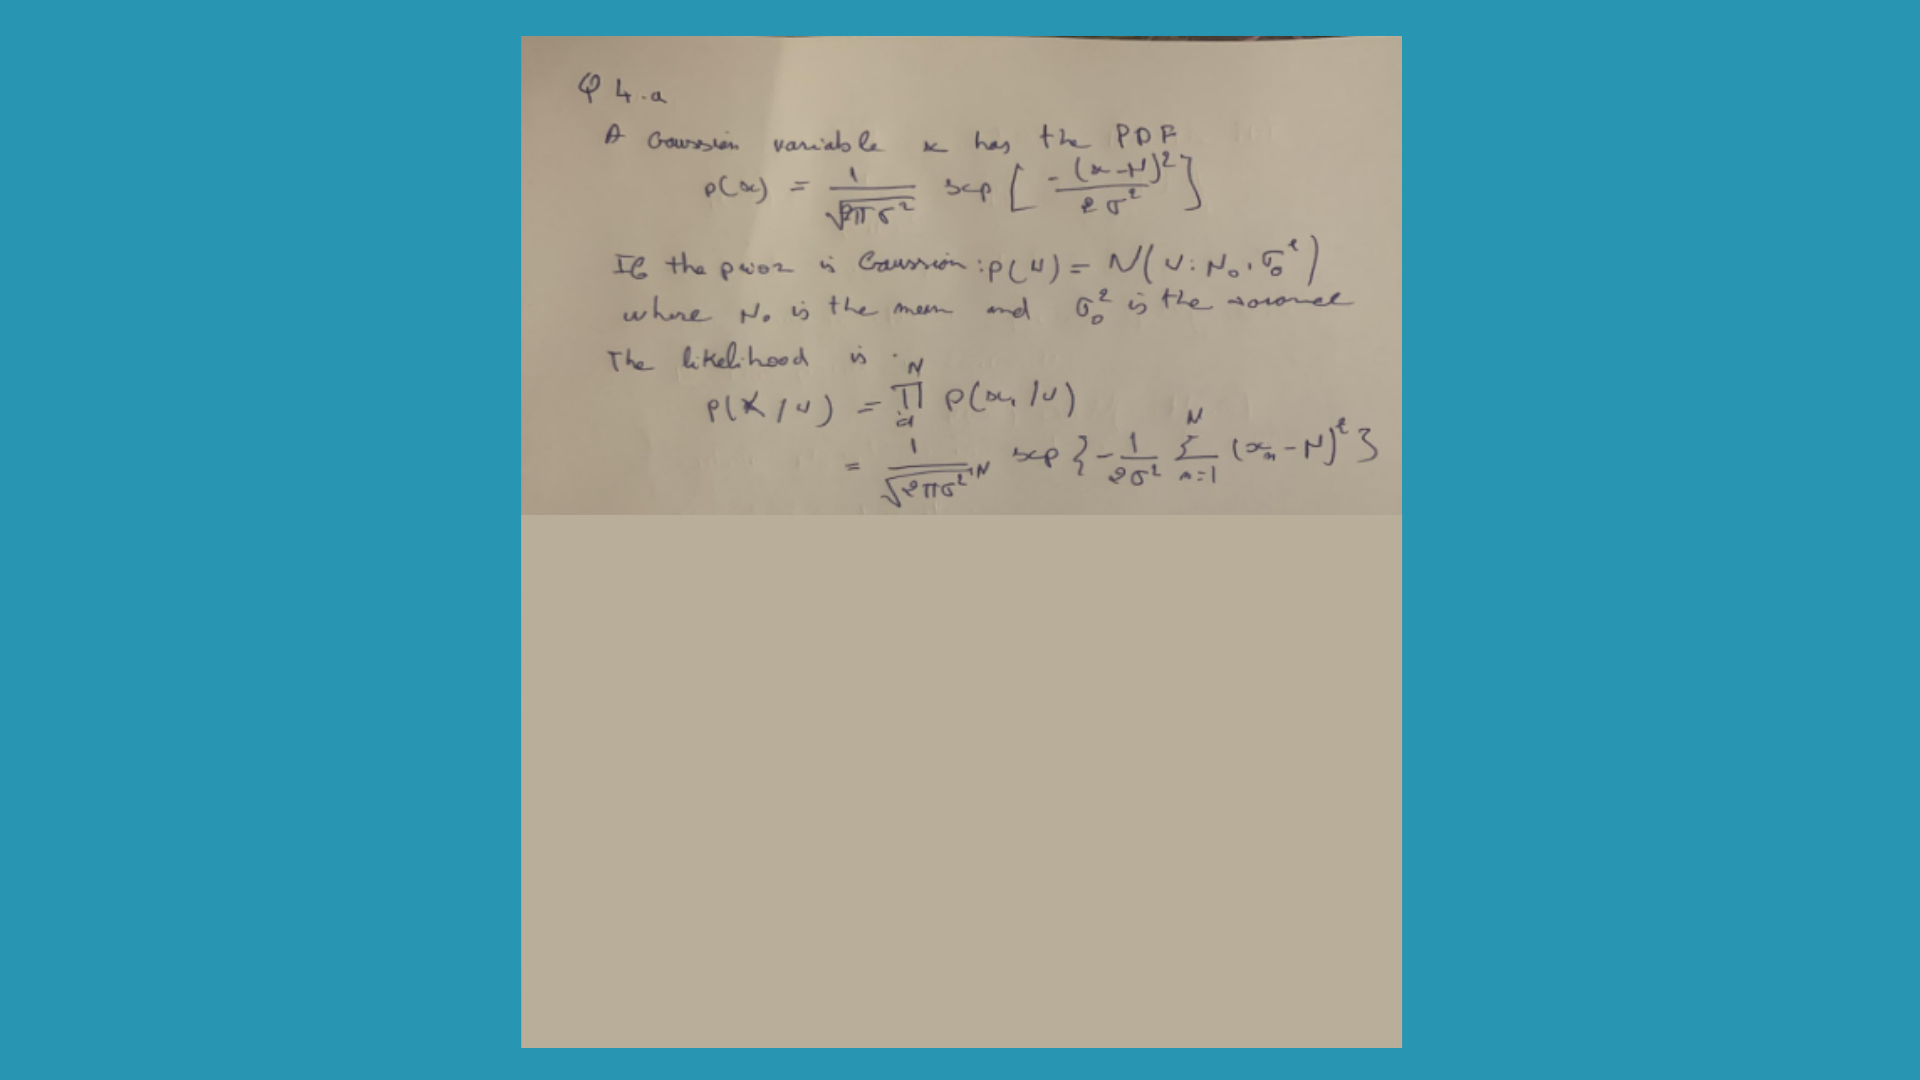 Q 4.a
A Gaussian variable x has the PDF
p(x) = 1/√(2πσ²) exp [ -(x-μ)²/2σ² ]
If the prior is Gaussian : p(μ) = N(μ: μ₀, σ₀²)
where μ₀ is the mean and σ₀² is the
The likelihood is .
p(X/μ) = ∏ᵢ₌₁ᴺ p(xᵢ/μ)
= 1/√(2πσ²)ᴺ exp {-1/2σ² Σₙ₌₁ᴺ (xₙ-μ)²}